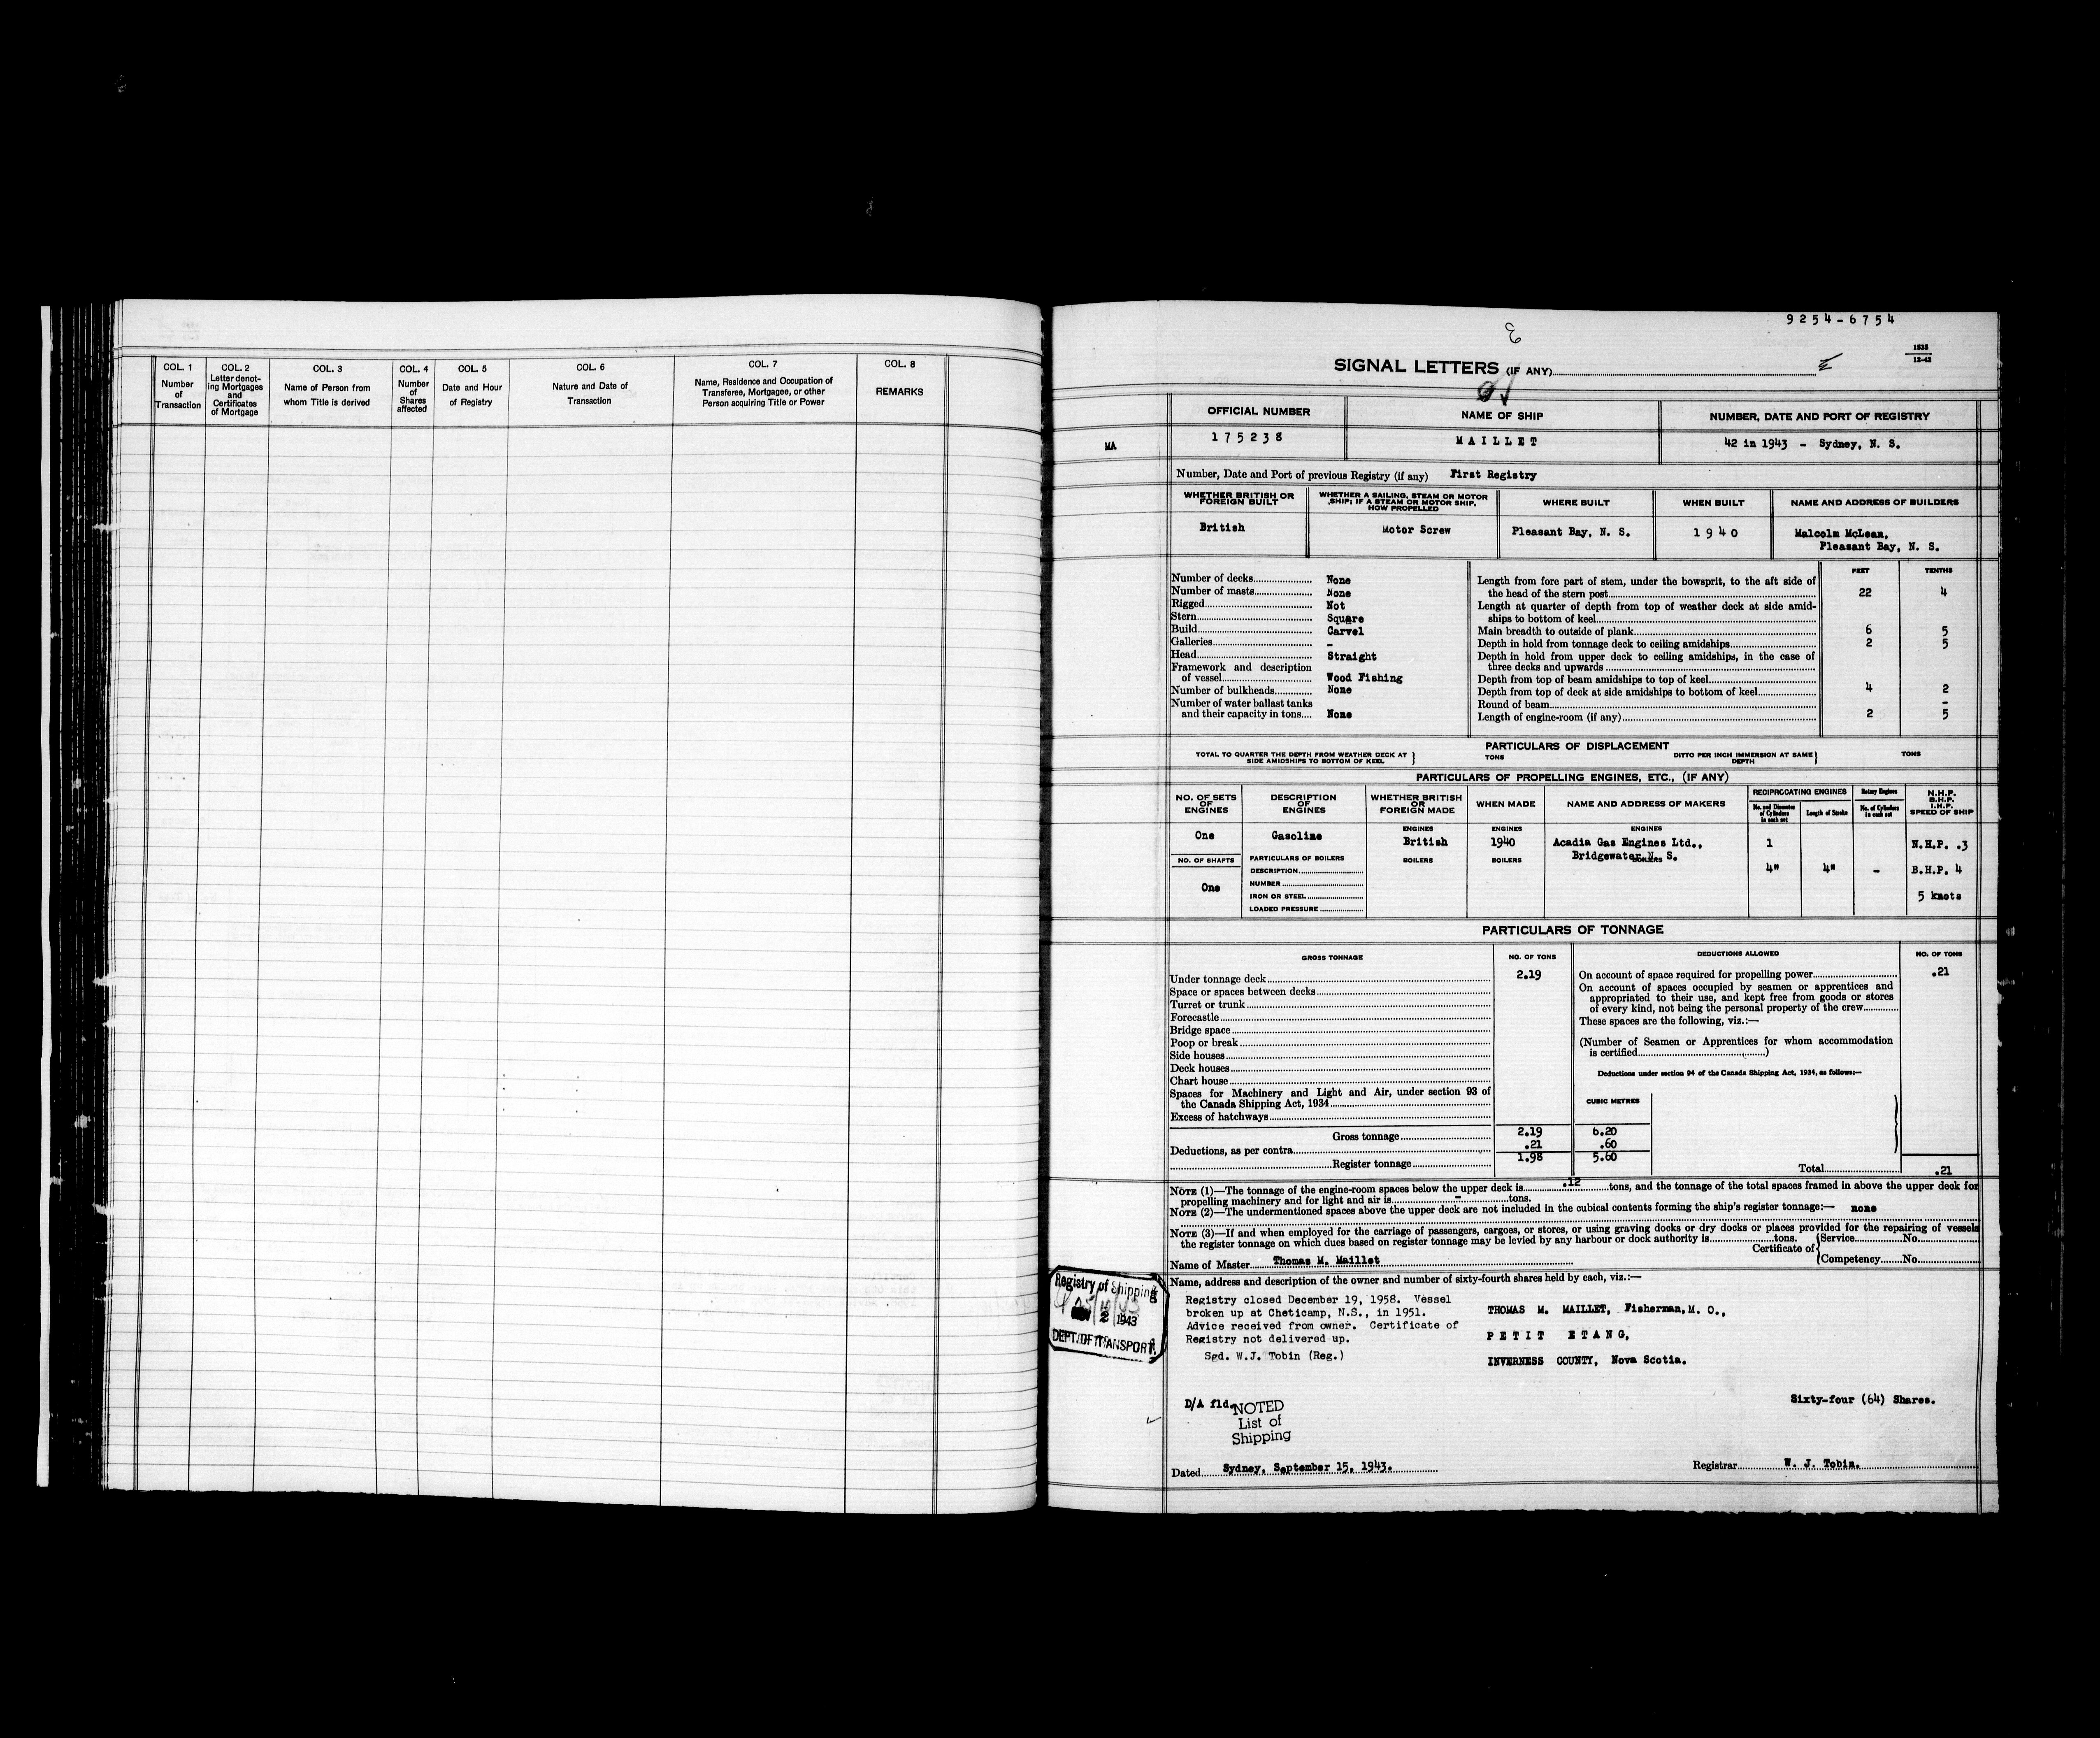 COL. 1
Number
of
Transaction
COL. 2
Letter denot-
ing Mortgages
and
Certificates
of Mortgage
COL. 3
Name of Person from
whom Title is derived
COL. 4
Number
of
Shares
affected
COL. 5
Date and Hour
of Registry
COL. 6
Nature and Date of
Transaction
COL. 7
Name, Residence and Occupation of
Transferee, Mortgagee, or other
Person acquiring Title or Power
COL. 8
REMARKS
9254-6754
1535
12-42
SIGNAL LETTERS (IF ANY)
OFFICIAL NUMBER
175238
NAME OF SHIP
MAILLET
NUMBER, DATE AND PORT OF REGISTRY
42 in 1943 - Sydney, N. S.
MA
Number, Date and Port of previous Registry (if any) First Registry
WHETHER BRITISH OR
FOREIGN BUILT
British
WHETHER A SAILING, STEAM OR MOTOR
SHIP; IF A STEAM OR MOTOR SHIP,
HOW PROPELLED
Motor Screw
WHERE BUILT
Pleasant Bay, N. S.
WHEN BUILT
1940
NAME AND ADDRESS OF BUILDERS
Malcolm McLean,
Pleasant Bay, N. S.
Number of decks None
Number of masts None
Rigged Not
Stern Square
Build Carvel
Galleries -
Head Straight
Framework and description
of vessel Wood Fishing
Number of bulkheads None
Number of water ballast tanks
and their capacity in tons None
FEET TENTHS
Length from fore part of stem, under the bowsprit, to the aft side of
the head of the stern post 22 4
Length at quarter of depth from top of weather deck at side amid-
ships to bottom of keel
Main breadth to outside of plank 6 5
Depth in hold from tonnage deck to ceiling amidships 2 5
Depth in hold from upper deck to ceiling amidships, in the case of
three decks and upwards
Depth from top of beam amidships to top of keel
Depth from top of deck at side amidships to bottom of keel 4 2
Round of beam -
Length of engine-room (if any) 2 5
PARTICULARS OF DISPLACEMENT
TOTAL TO QUARTER THE DEPTH FROM WEATHER DECK AT
SIDE AMIDSHIPS TO BOTTOM OF KEEL
TONS
DITTO PER INCH IMMERSION AT SAME
DEPTH
TONS
PARTICULARS OF PROPELLING ENGINES, ETC., (IF ANY)
NO. OF SETS
OF
ENGINES
One
NO. OF SHAFTS
One
DESCRIPTION
OF
ENGINES
Gasoline
PARTICULARS OF BOILERS
DESCRIPTION
NUMBER
IRON OR STEEL
LOADED PRESSURE
WHETHER BRITISH
OR
FOREIGN MADE
ENGINES
British
BOILERS
WHEN MADE
ENGINES
1940
BOILERS
NAME AND ADDRESS OF MAKERS
ENGINES
Acadia Gas Engines Ltd.,
Bridgewater, N. S.
BOILERS
RECIPROCATING ENGINES
No. and Diameter
of Cylinders
in each set
1
4"
Length of Stroke
4"
Rotary Engines
No. of Cylinders
in each set
-
N.H.P.
B.H.P.
I.H.P.
SPEED OF SHIP
N.H.P. .3
B.H.P. 4
5 knots
PARTICULARS OF TONNAGE
GROSS TONNAGE
NO. OF TONS
Under tonnage deck 2.19
Space or spaces between decks
Turret or trunk
Forecastle
Bridge space
Poop or break
Side houses
Deck houses
Chart house
Spaces for Machinery and Light and Air, under section 93 of
the Canada Shipping Act, 1934
Excess of hatchways
Gross tonnage 2.19 6.20
Deductions, as per contra .21 .60
Register tonnage 1.98 5.60
DEDUCTIONS ALLOWED
NO. OF TONS
On account of space required for propelling power .21
On account of spaces occupied by seamen or apprentices and
appropriated to their use, and kept free from goods or stores
of every kind, not being the personal property of the crew
These spaces are the following, viz.:—
(Number of Seamen or Apprentices for whom accommodation
is certified)
Deductions under section 94 of the Canada Shipping Act, 1934, as follows:—
CUBIC METRES
Total .21
NOTE (1)—The tonnage of the engine-room spaces below the upper deck is .12 tons, and the tonnage of the total spaces framed in above the upper deck for
propelling machinery and for light and air is - tons.
NOTE (2)—The undermentioned spaces above the upper deck are not included in the cubical contents forming the ship's register tonnage:— none
NOTE (3)—If and when employed for the carriage of passengers, cargoes, or stores, or using graving docks or dry docks or places provided for the repairing of vessels
the register tonnage on which dues based on register tonnage may be levied by any harbour or dock authority is tons.
Certificate of
Service No.
Competency No.
Name of Master Thomas M. Maillet
Name, address and description of the owner and number of sixty-fourth shares held by each, viz.:—
Registry of Shipping
2 1943
DEPT. OF TRANSPORT.
Registry closed December 19, 1958. Vessel
broken up at Cheticamp, N.S., in 1951.
Advice received from owner. Certificate of
Registry not delivered up.
Sgd. W.J. Tobin (Reg.)
THOMAS M. MAILLET, Fisherman, M. O.,
PETIT ETANG,
INVERNESS COUNTY, Nova Scotia.
Sixty-four (64) Shares.
D/A fld.
NOTED
List of
Shipping
Dated Sydney, September 15, 1943.
Registrar W. J. Tobin.